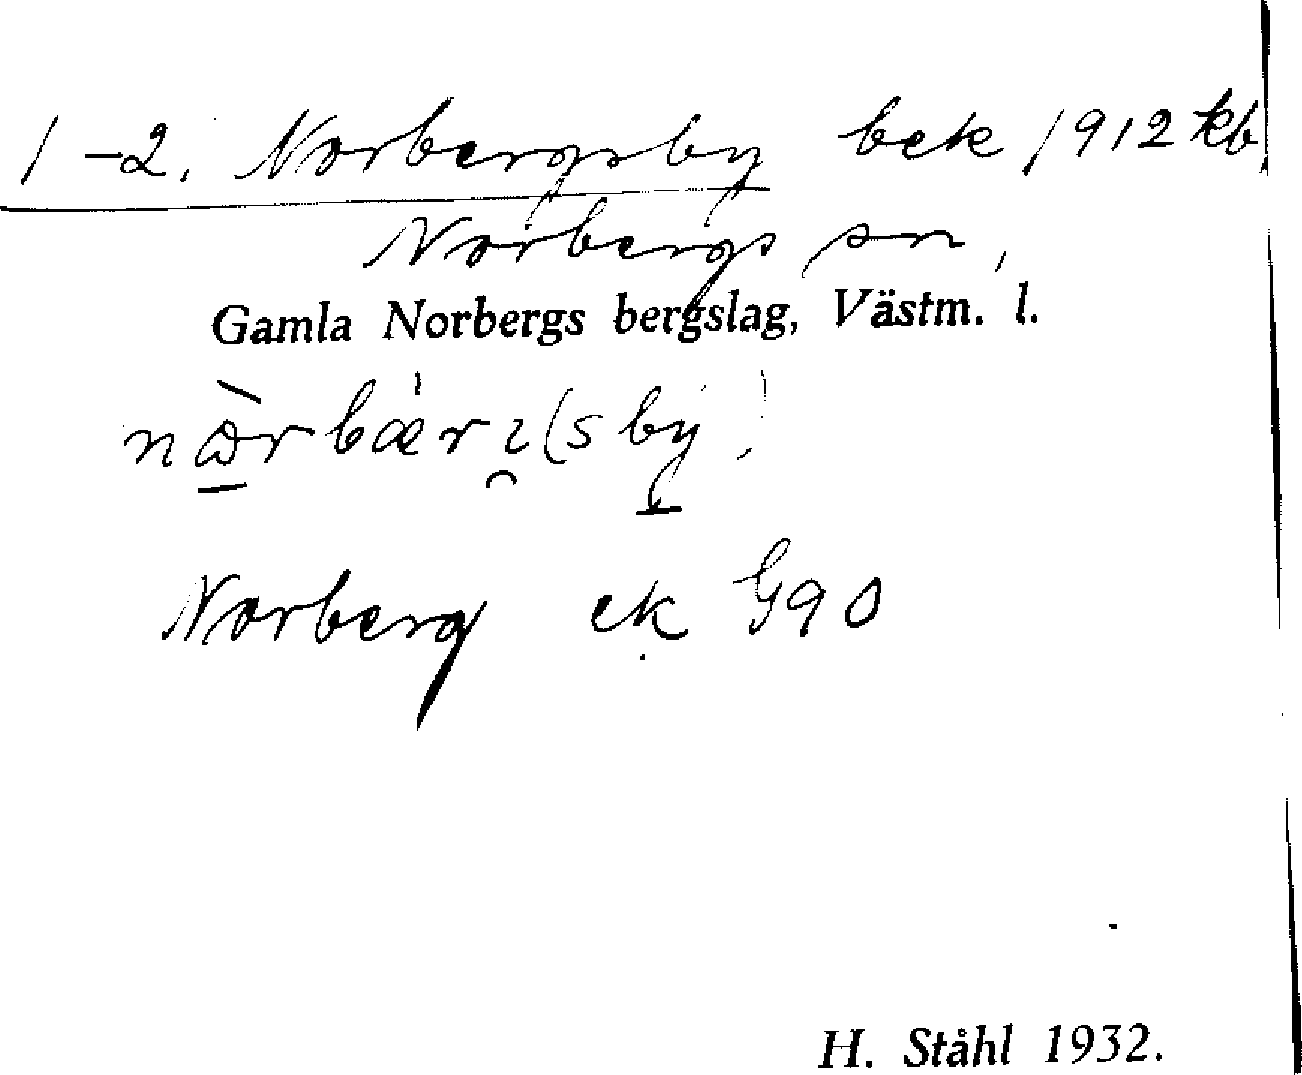 1-2. Norbergsby bek 1912 kb.
Norbergs sn,
Gamla Norbergs bergslag, Västm. l.
Norberg ek G90
H. Ståhl 1932.